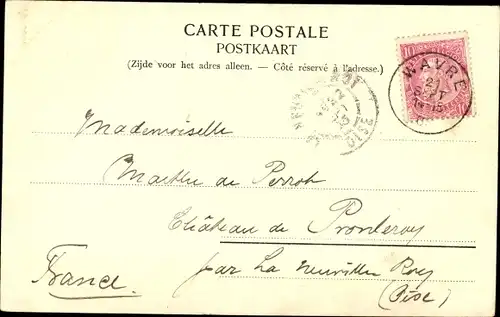 CARTE POSTALE
POSTKAART
(Zijde voor het adres alleen. — Côté réservé à l'adresse.)
10
WAVRE
21
SEPT
OISE
Mademoiselle
Marthe de Perrot
Château de Pronleroy
par La neuville Roy
France.
(Oise)